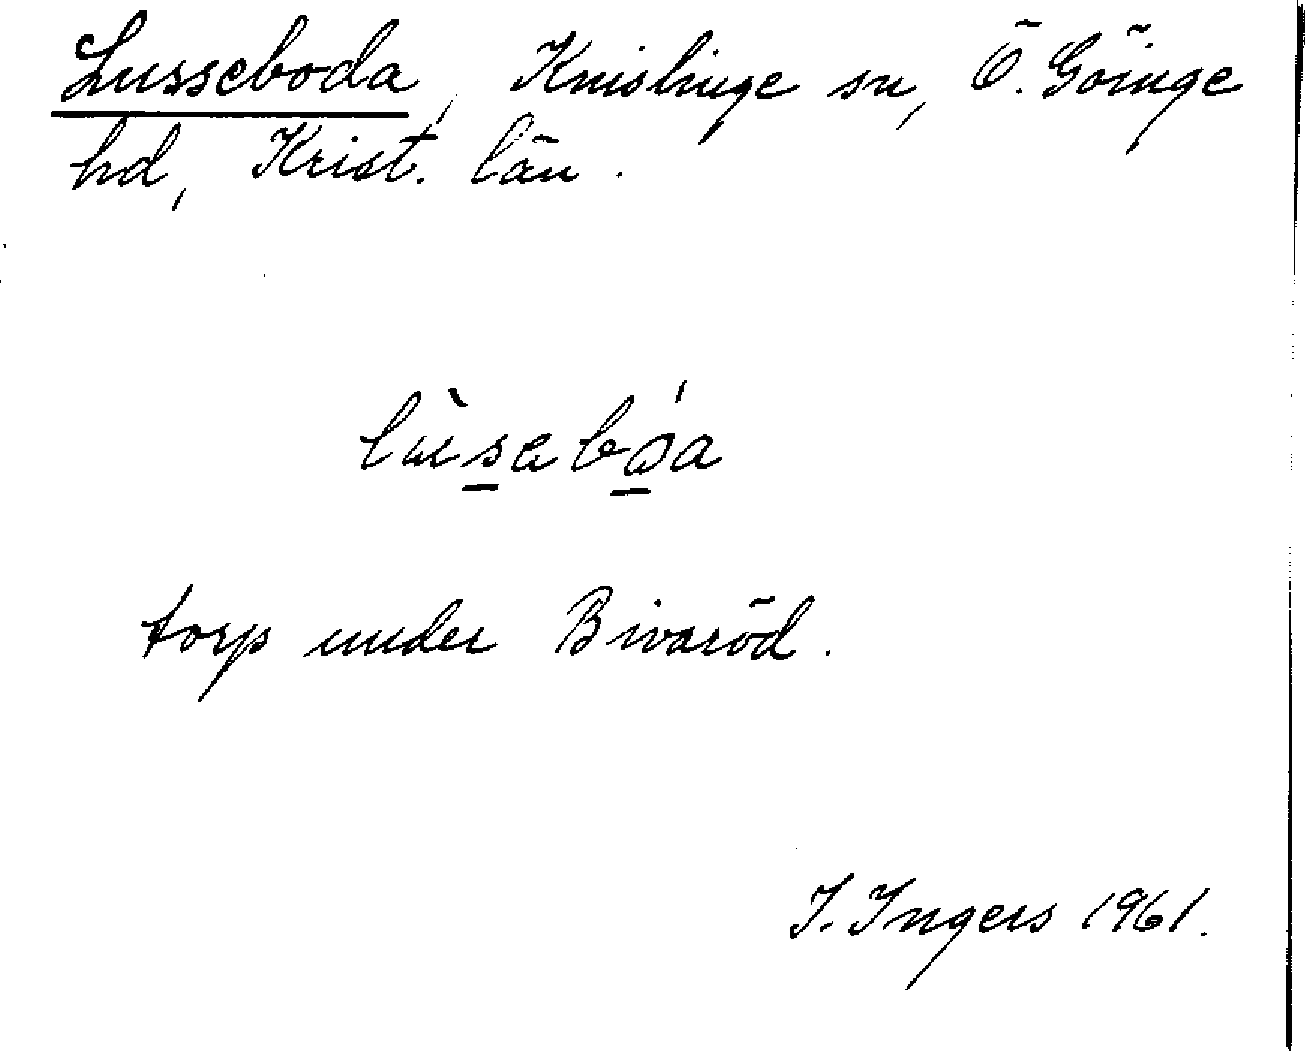 Lusseboda, Knislinge sn, Ö. Göinge
hd, Krist. län.
lùsabóa
torp under Bivaröd.
I. Ingers 1961.